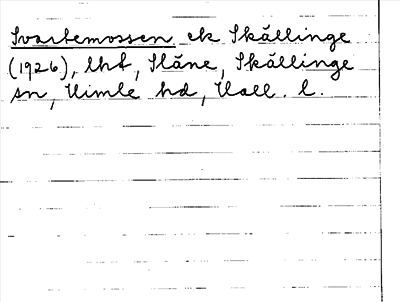 Svartemossen ek Skällinge
(1926), lht, Släne, Skällinge
sn, Himle hd, Hall. l.